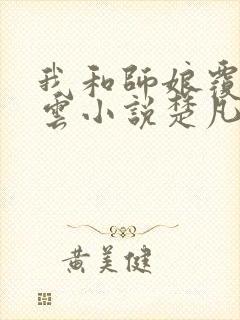 我和師娘覆
雲小說楚凡
黃美健